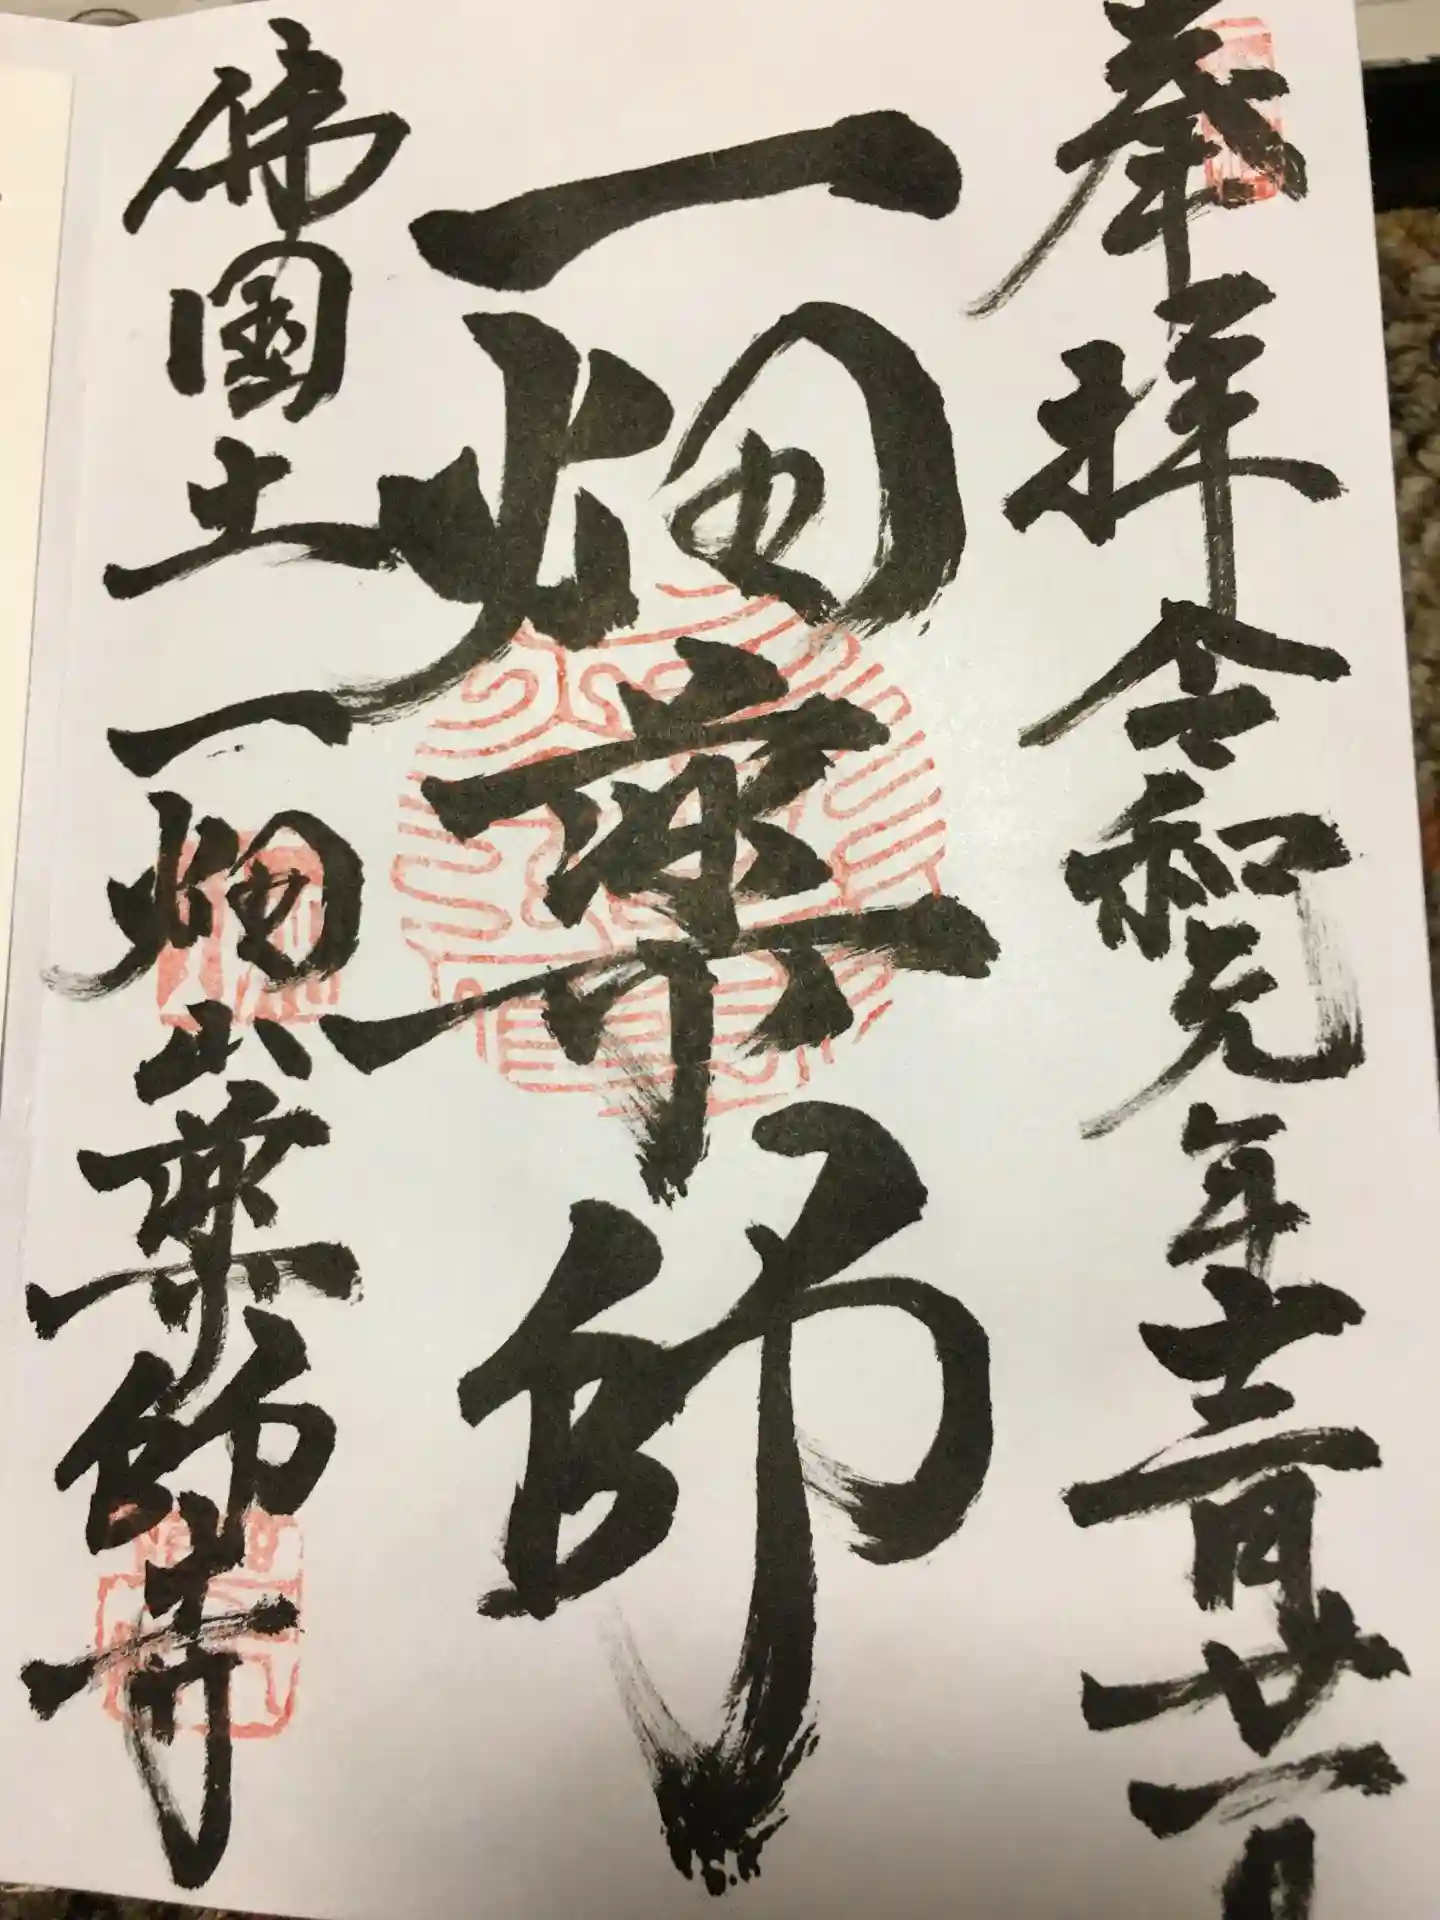 奉拝 令和元年十二月廿一日
一畑薬師
佛国土一畑山薬師寺